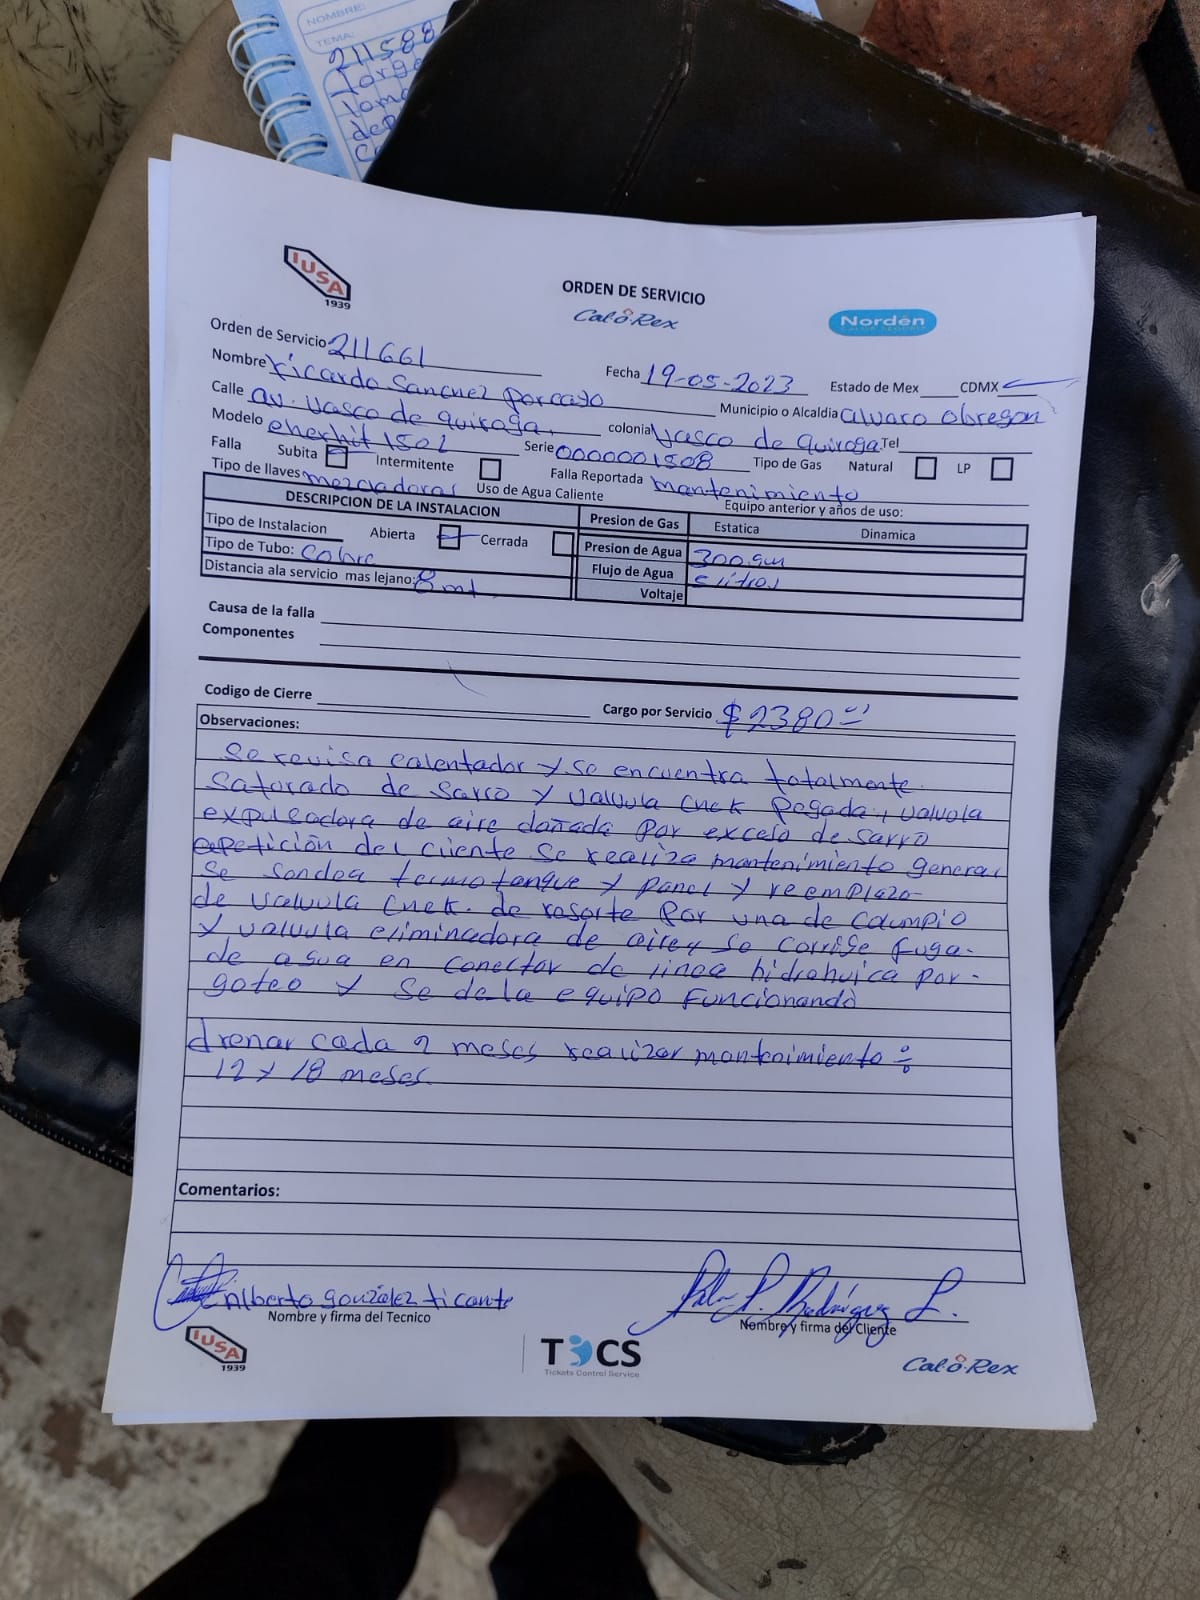 NOMBRE:
TEMA:
211588
Jorge
IUSA
1939
ORDEN DE SERVICIO
Cal-o-Rex
Nordën
Orden de Servicio 211661
Fecha 19-05-2023 Estado de Mex CDMX
Nombre Ricardo Sanchez porcayo
Municipio o Alcaldia alvaro obregon
Calle av. vasco de quiroga. colonia Vasco de quiroga Tel
Modelo enerhit 1502 Serie 0000001508 Tipo de Gas Natural LP
Falla Subita Intermitente Falla Reportada mantenimiento
Tipo de llaves mezcladoras Uso de Agua Caliente Equipo anterior y años de uso:
DESCRIPCION DE LA INSTALACION Presion de Gas Estatica Dinamica
Tipo de Instalacion Abierta Cerrada Presion de Agua 300 gm
Tipo de Tubo: Cobre Flujo de Agua litros
Distancia ala servicio mas lejano: 8 mt Voltaje
Causa de la falla
Componentes
Codigo de Cierre Cargo por Servicio $2380
Observaciones:
Se revisa calentador y se encuentra totalmente
Saturado de sarro y valvula chek Pegada, valvula
expulsadora de aire dañada por exceso de sarro
apetición del cliente se realiza mantenimiento general
se sondea termotanque y panel y reemplazo
de valvula chek. de resorte por una de columpio
y valvula eliminadora de aire y se corrige fuga-
de agua en conector de linea hidrahuica por-
goteo y se deja equipo funcionando
drenar cada 2 meses realizar mantenimiento ÷
12 y 18 meses.
Comentarios:
Alberto gonzález ticante
Nombre y firma del Tecnico
P. Rodríguez L.
Nombre y firma del Cliente
IUSA
1939
TCS
Tickets Control Service
Cal-o-Rex